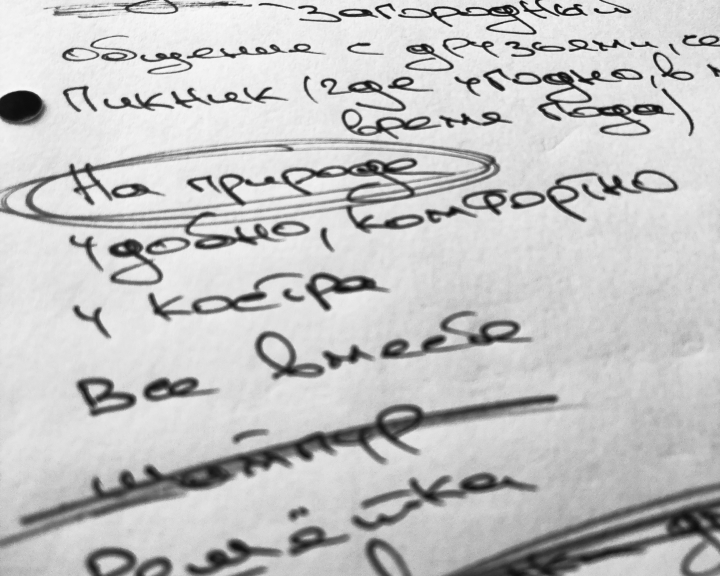 загородный
общение с друзьями, се
Пикник (где угодно, в л
время года)
На природе
удобно, комфортно
у костра
Все вместе
шампур
Решётка